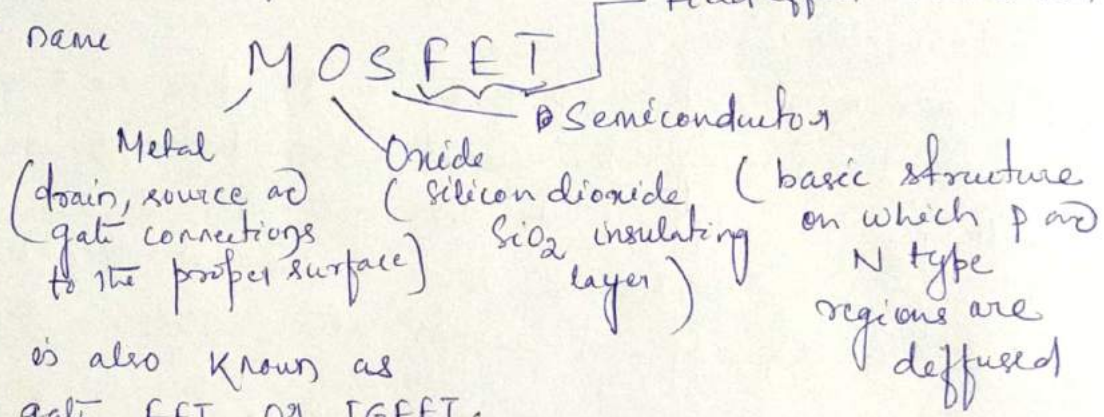 name
MOSFET
Semiconductor
Metal
(drain, source and gate connections to the proper surface)
Oxide
(silicon dioxide SiO2 insulating layer)
(basic structure on which p and N type regions are deffused
is also known as
FET or IGFET.